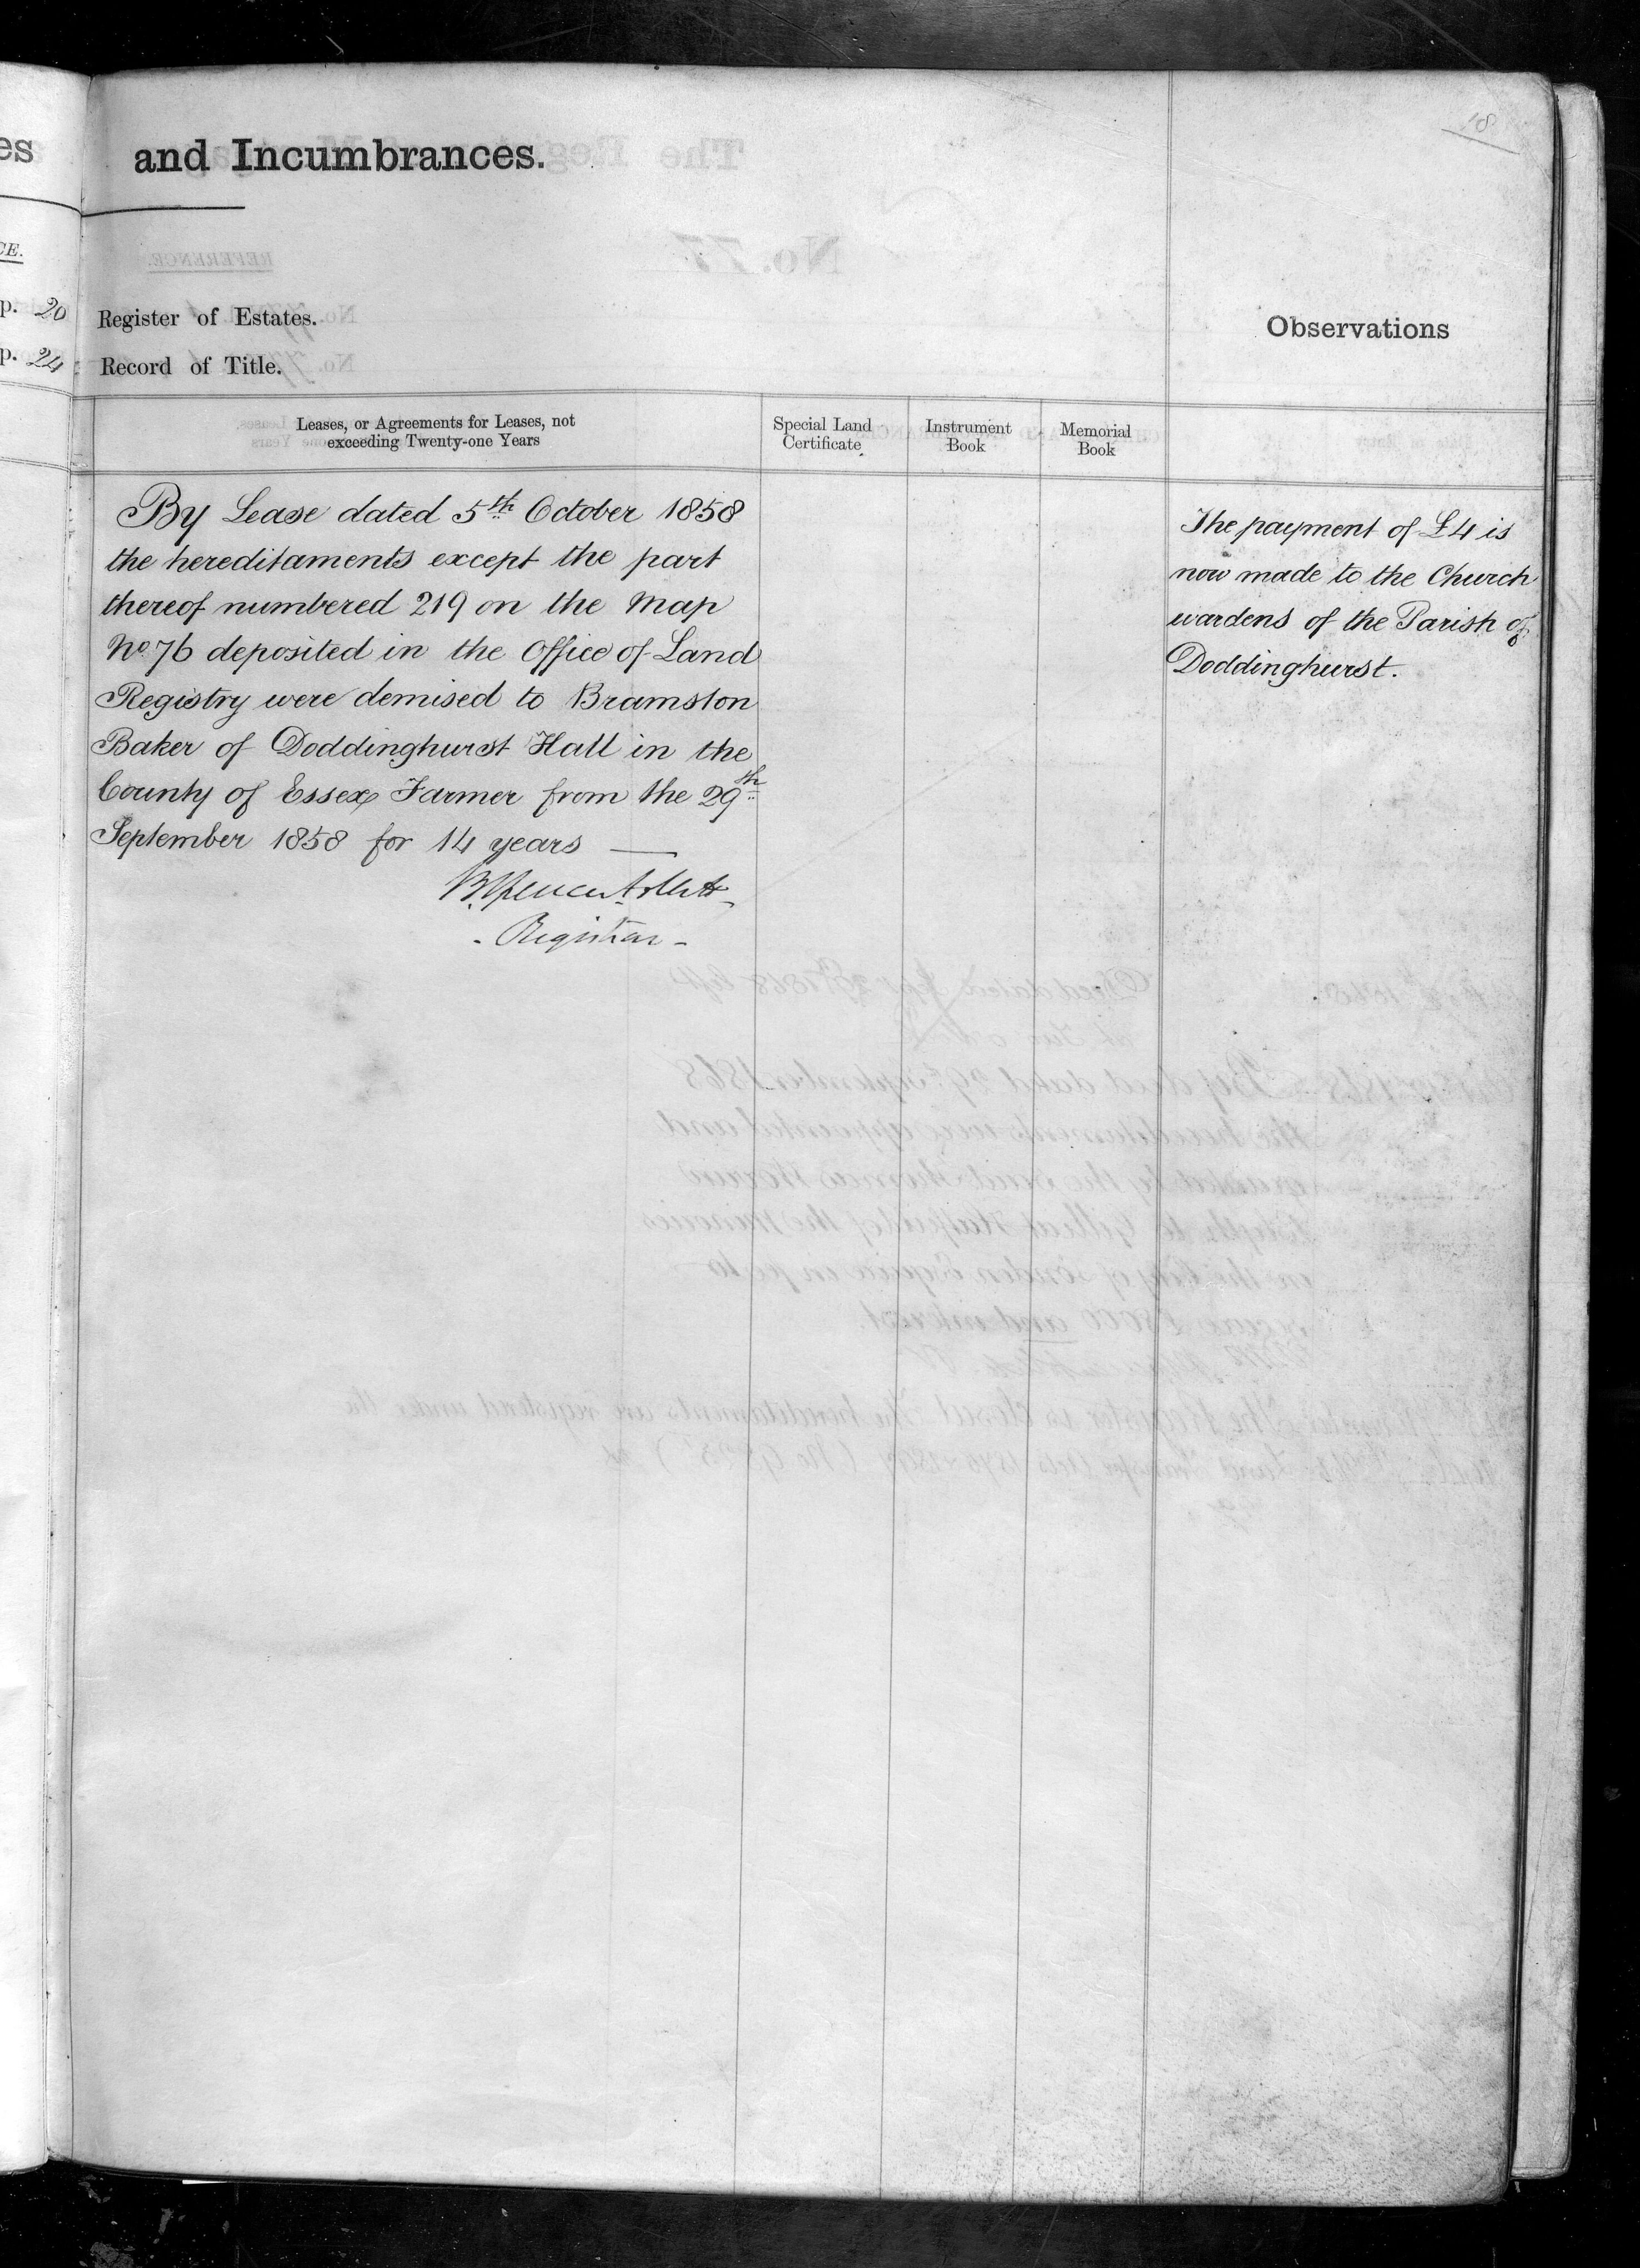 es
and Incumbrances.
18
CE.
p. 20
Register of Estates.
Observations
p. 24
Record of Title.
Leases, or Agreements for Leases, not
exceeding Twenty-one Years
Special Land
Certificate
Instrument
Book
Memorial
Book
By Lease dated 5th October 1858
the hereditaments except the part
thereof numbered 219 on the Map
No. 76 deposited in the Office of Land
Registry were demised to Bramston
Baker of Doddinghurst Hall in the
County of Essex Farmer from the 29th
September 1858 for 14 years —
- Registrar -
The payment of £4 is
now made to the Church
wardens of the Parish of
Doddinghurst.